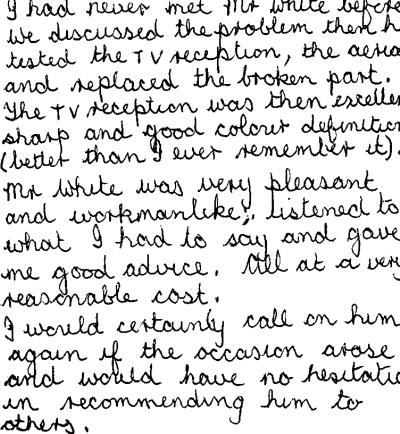 I had never met Mr White before
we discussed the problem then h
tested the TV reception, the aeria
and replaced the broken part.
The TV reception was then excellen
sharp and good colour definition
(better than I ever remember it).
Mr White was very pleasant
and workmanlike, listened to
what I had to say and gave
me good advice. All at a very
reasonable cost.
I would certainly call on him
again if the occasion arose
and would have no hesitatio
in recommending him to
others.